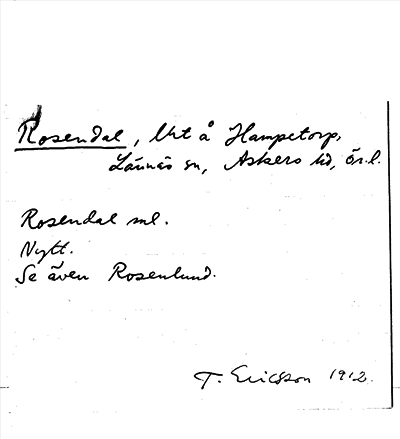 Rosendal, lht å Hampetorp,
Lännäs sn, Askers hd, Ör.l.
Rosendal sml.
Nytt.
Se även Rosenlund.
T. Ericsson 1912.